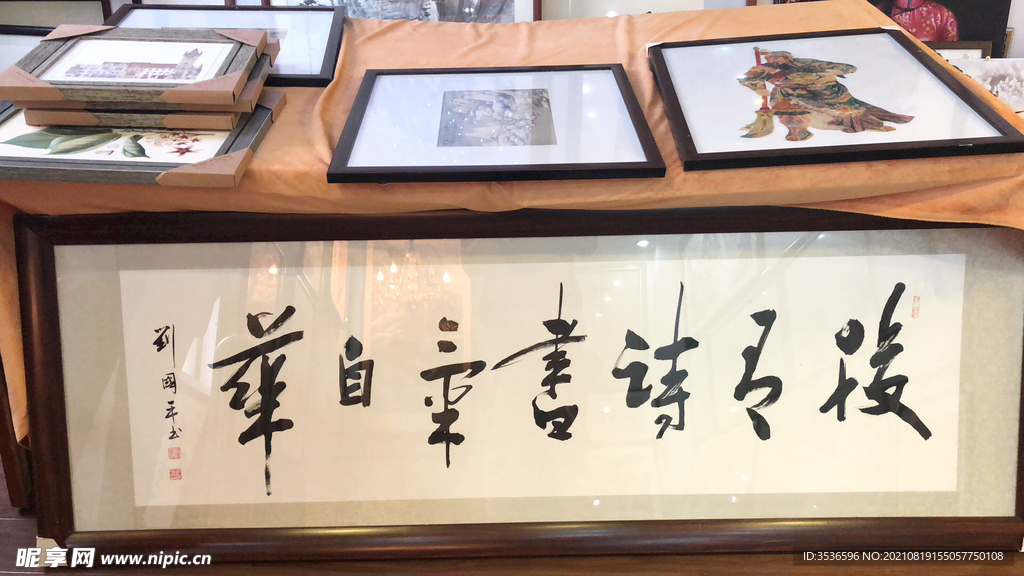 腹有诗書氣自華
劉國平书
昵享网 www.nipic.cn
ID:3536596 NO:20210819155057750108